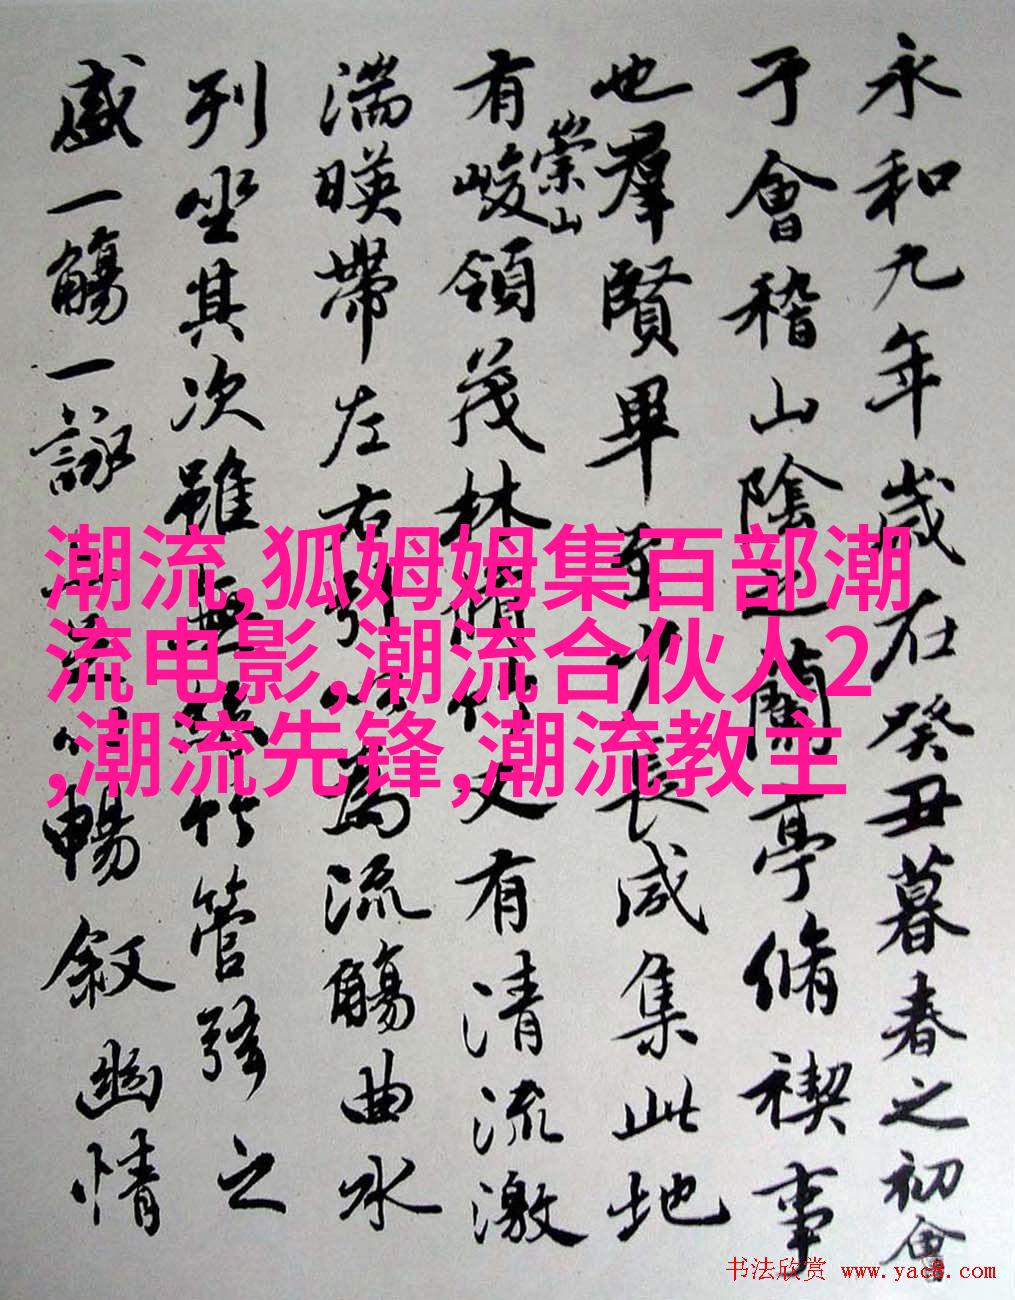 永和九年歲在癸丑暮春之初會
于會稽山陰之蘭亭脩禊事
也羣賢畢至少長咸集此地
有崇山峻領茂林脩竹又有清流激
湍暎帶左右引以為流觴曲水
列坐其次雖無絲竹管弦之
盛一觴一詠亦足以暢敘幽情
潮流,狐姆姆集百部潮
流电影,潮流合伙人2
,潮流先锋,潮流教主
书法欣赏 www.yac8.com